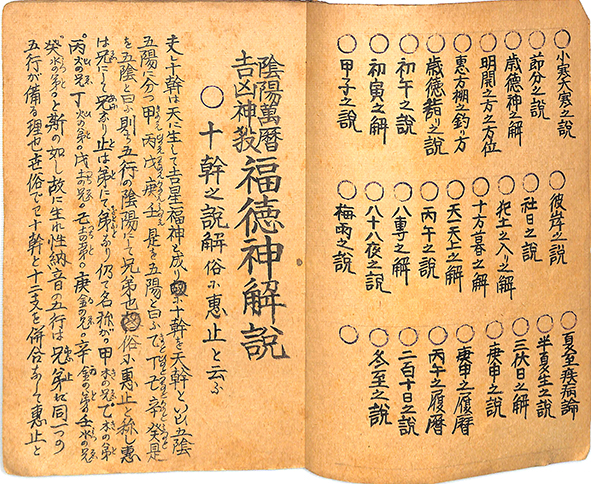 ○小寒大寒之説
○節分之説
○歳徳神之解
○明開之方之方位
○恵方棚之釣り方
○歳徳飾り之説
○初午之説
○初寅之解
○甲子之説
○彼岸之説
○社日之説
○犯土之入り之解
○十方暮之解
○天一天上之解
○丙午之説
○八専之解
○八十八夜之説
○梅雨之説
○夏至疫病論
○半夏生之説
○三伏日之解
○庚申之説
○庚申之履暦
○丙午之履暦
○二百十日之説
○冬至之説
陰陽萬暦
吉凶神殺
福徳神解説
○十幹之説解 俗に惠止と云ふ
夫レ十幹は天に生して吉星福神と成り 十幹を天幹といふ五陰
五陽に分つ甲丙戊庚壬是を五陽と曰ふ乙丁己辛癸是
を五陰と曰ふ則ち五行の陰陽にして兄弟也 俗に惠止と称し惠
は兄にして兄なり止は弟にて弟なり仍て名称が甲木の兄乙木の弟
丙火の兄丁火の弟戊土の兄己土の弟庚金の兄辛金の弟壬水の兄
癸水の弟と斯の如し故に生れ性納音の五行は兄弟は同一つの
五行が備る理也世俗でで十幹と十二支を併合なして惠止と